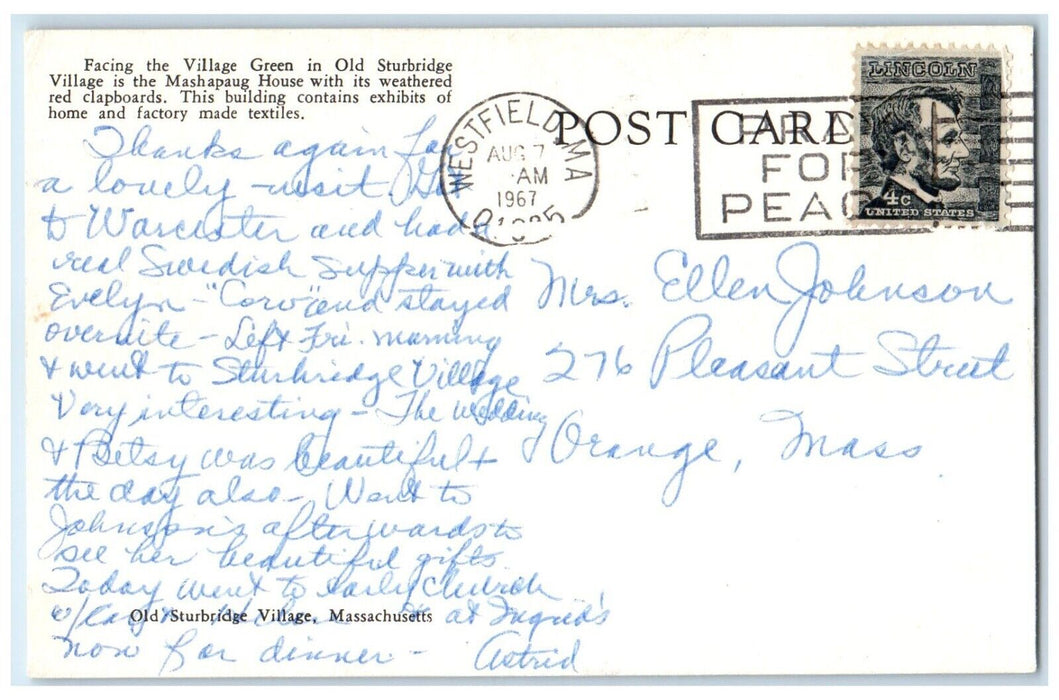 Facing the Village Green in Old Sturbridge
Village is the Mashapaug House with its weathered
red clapboards. This building contains exhibits of
home and factory made textiles.
POST CARD
WESTFIELD, MA
AUG 7
AM
1967
PRAY
FOR
PEACE
LINCOLN
4c
UNITED STATES
Thanks again for
a lovely visit.
to Worcester and had a
real Swedish supper with
Evelyn - "Corv" and stayed
overnite - Left Fri. morning
& went to Sturbridge Village
Very interesting - The wedding
& Betsy was beautiful &
the day also - Went to
afterwards to
see her beautiful gifts
Today went to Early Church
w/ at Ingrid's
now for dinner - Astrid
Mrs. Ellen Johnson
276 Pleasant Street
Orange, Mass
Old Sturbridge Village, Massachusetts